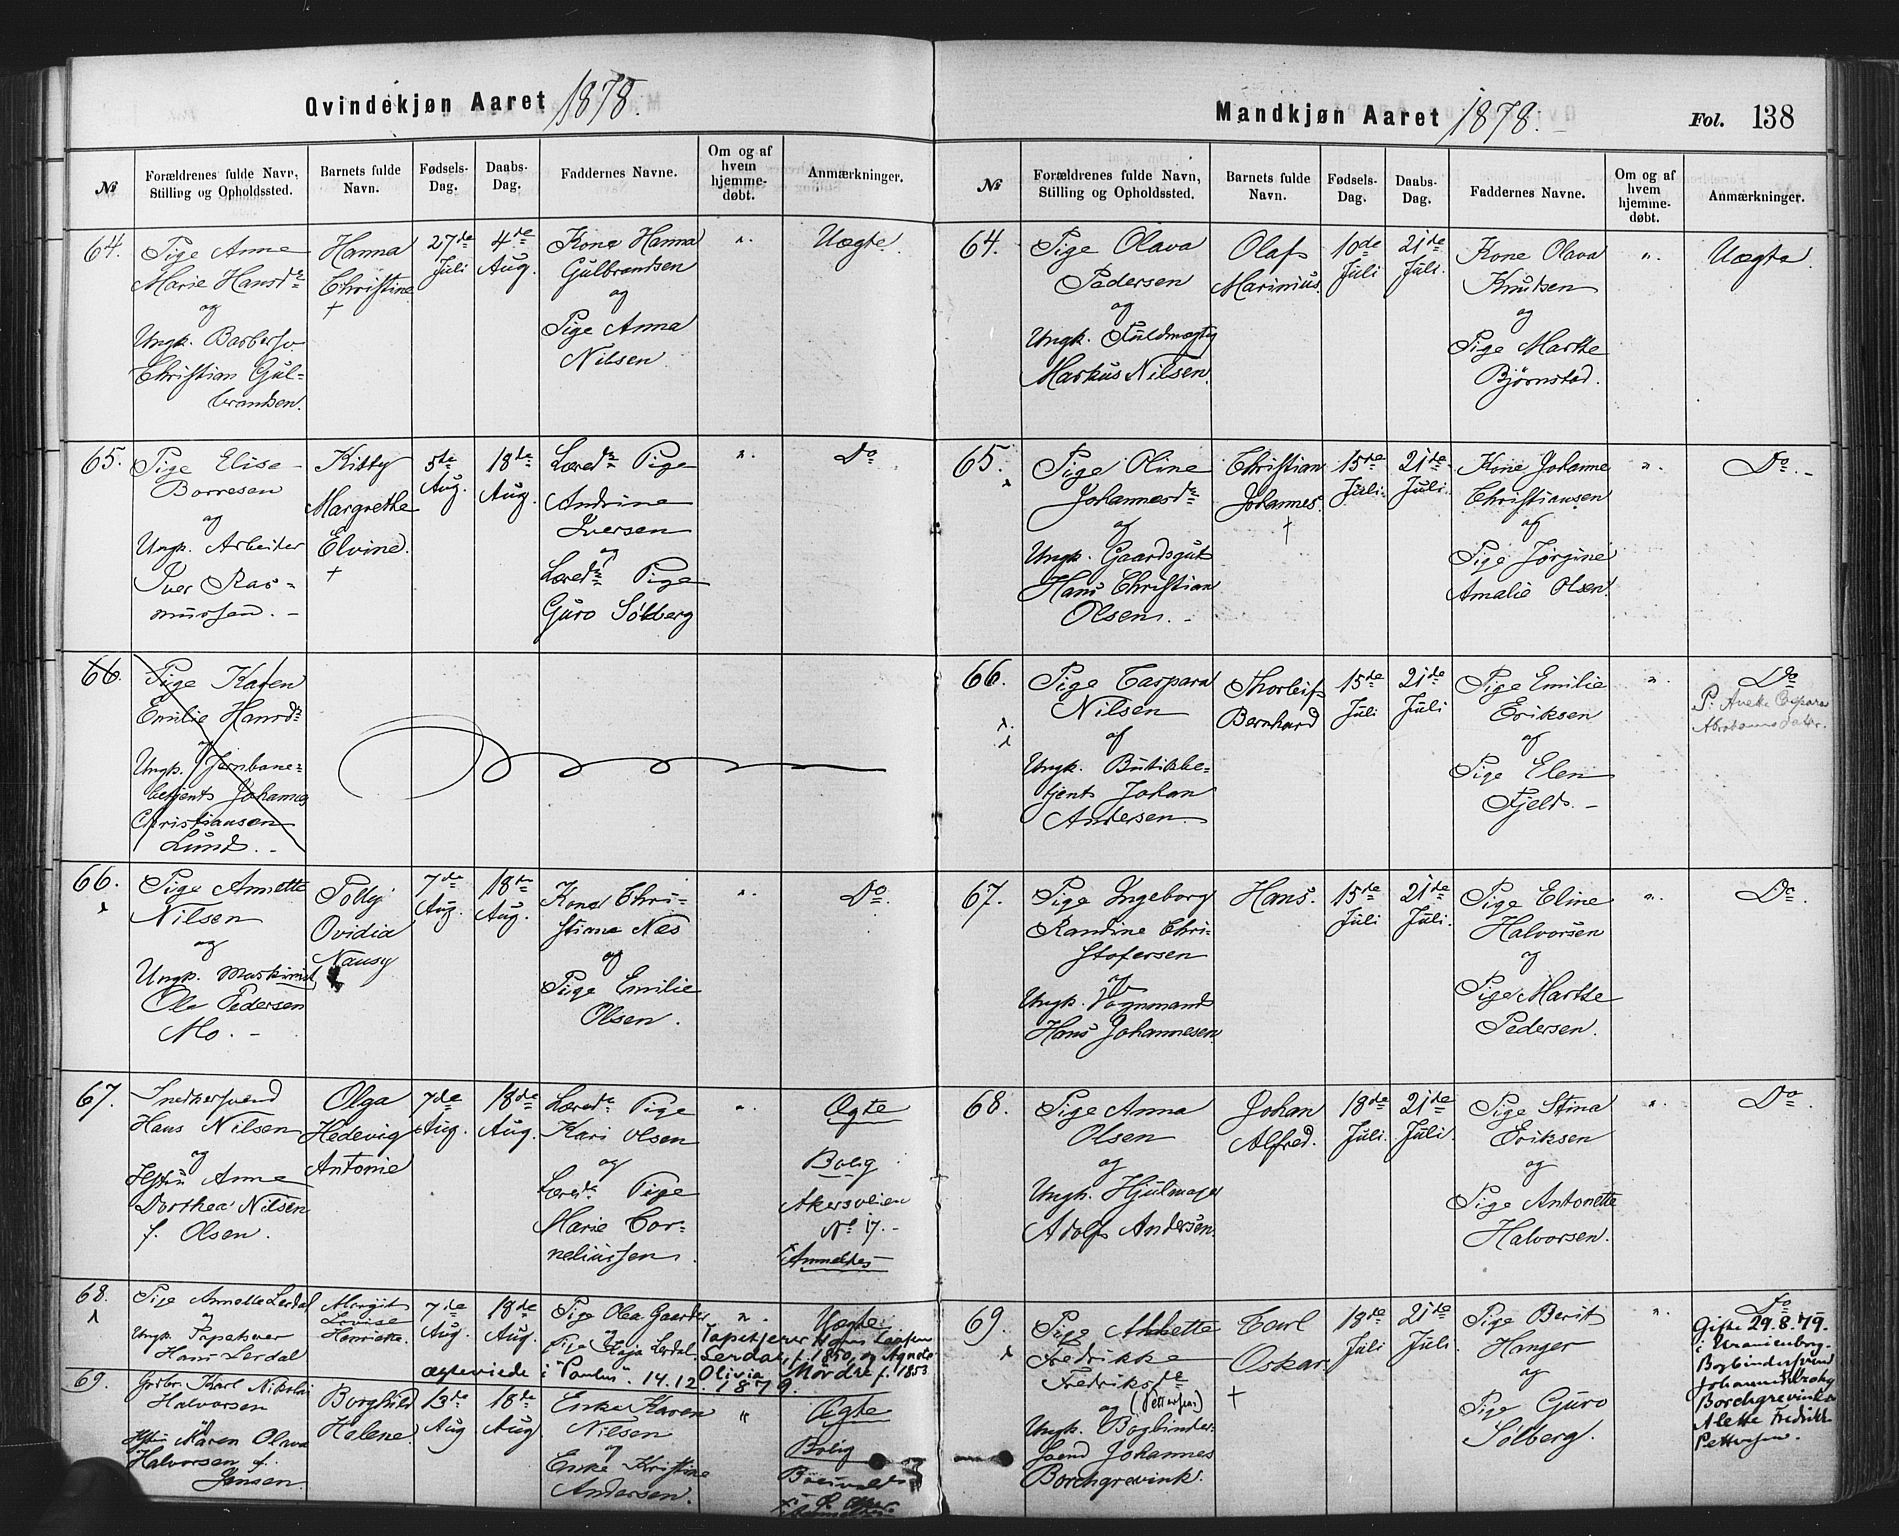 Qvindekjøn Aaret 1878.
№
Forældrenes fulde Navn,
Stilling og Opholdssted.
Barnets fulde
Navn.
Fødsels-
Dag.
Daabs-
Dag.
Faddernes Navne.
Om og af
hvem
hjemme-
døbt.
Anmærkninger.
64.
Pige Anne
Marie Hansdr
og
Ungk. Barbersv.
Christian Gul-
brandsen.
Hanna
Christine
+
27de
Juli
4de
Aug.
Kone Hanna
Gulbrandsen
og
Pige Anna
Nilsen
".
Uægte.
65.
Pige Elise
Borresen
og
Ungk. Arbeider
Iver Ras-
mussen. -
Kitty
Margrethe
Elvine.
+
5te
Aug.
18de
Aug.
Læredr Pige
Andrine
Iversen
og
Læredr Pige
Guro Solberg
".
Do.
66.
Pige Karen
Emilie Hansdr
af
Ungk. Jernbane-
betjent Johannes
Christiansen
Lund. -
66.
Pige Annette
Nilsen
og
Ungk. Maskinist
Ole Pedersen
Mo. -
Polly
Ovidia
Nansy
7de
Aug.
18de
Aug.
Kone Chri-
stiane Næs
og
Pige Emilie
Olsen.
".
Do.
67.
Snedkersvend
Hans Nilsen
og
Hstru Anne
Dorthea Nilsen
f. Olsen.
Olga
Hedevig
Antonie
7de
Aug.
18de
Aug.
Lærede Pige
Kari Olsen
og
Lærede Pige
Marie Cor-
neliussen.
".
Ægte
Bolig
Akersveien
No 17. -
Anmeldes
68.
Pige Annette Lerdal
og
Ungk. Tapetserer
Hans Lerdal
Margit
Lovise
Henriette.
7de
Aug.
18de
Aug.
Pige Olea Gaarder
og
Pige Kaja Lerdal.
".
Uægte.
Tapetserer Hans
Lerdal, f. 1850, og Agnete
Olivia Mordre f. 1853
ægteviede i "Paulus". 14.12. 1879.
69.
Karl Nikolai
Halvorsen
og
Hstru Karen Olava
Halvorsen f.
Jensen.
Borghild
Halene.
13de
Aug
18de
Aug
Enke Karen
Nilsen
og
Enke Kristine
Andersen.
"
Ægte
Bolig
Mandkjøn Aaret 1878.
Fol. 138
№
Forældrenes fulde Navn,
Stilling og Opholdssted.
Barnets fulde
Navn.
Fødsels-
Dag.
Daabs-
Dag.
Faddernes Navne.
Om og af
hvem
hjemme-
døbt.
Anmærkninger.
64.
Pige Olava
Pedersen
og
Ungk. Fuldmægtig
Markus Nilsen.
Olaf
Marinius.
10de
Juli
21de
Juli.
Kone Olava
Knudsen
og
Pige Marthe
Bjørnstad.
".
Uægte.
65.
Pige Oline
Johannesdr
af
Ungk. Gaardsgut
Hans Christian
Olsen. -
Christian
Johannes.
+
15de
Juli.
21de
Juli.
Kone Johanne
Christiansen
af
Pige Jørgine
Amalie Olsen.
".
Do. -
66.
Pige Caspara
Nilsen
af
Ungk. Butikbe-
tjent Johan
Andersen.
Thorleif
Bernhard
15de
Juli
21de
Juli
Pige Emilie
Eriksen
af
Pige Elen
Fjeld. -
".
Do
P. Anette Caspara
Abrahamsdatter.
67.
Pige Ingeborg
Randine Chri-
stofersen
og
Ungk. Vognmand
Hans Johannesen
Hans.
15de
Juli
21de
Juli.
Pige Eline
Halvorsen
og
Pige Marthe
Pedersen.
".
Do.
68.
Pige Anna
Olsen
og
Ungk. Hjulmager
Adolf Andersen.
Johan
Alfred.
18de
Juli.
21de
Juli.
Pige Stina
Eriksen
og
Pige Antonette
Halvorsen.
".
Do.
69.
Pige Alette
Fredrikke
Fredriksdr
og (Pettersen)
Ungk. Bogbinder-
svend Johannes
Borchgrevink.
Carl
Oskar
+
18de
Juli
21de
Juli.
Pige Berit
Hanger
og
Pige Guro
Solberg.
".
Do
Gifte 29.8.79.
i Uranienborg.
Bogbindersvend
Johannes
Borchgrevink og
Alette Fredrikke
Pettersen.